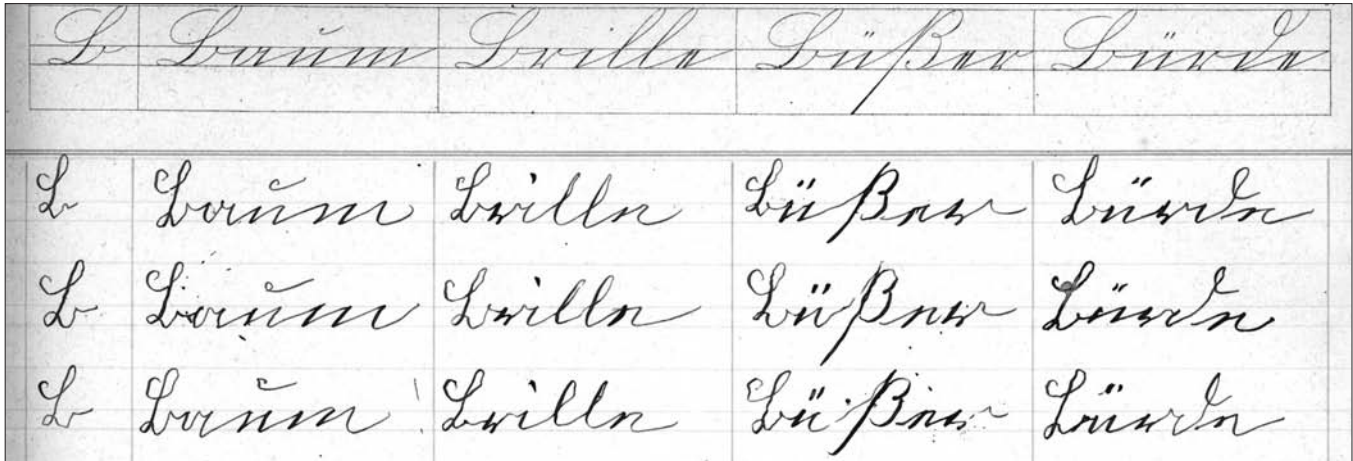 B Baum Brille Büßer Bürde
B Baum Brille Büßer Bürde
B Baum Brille Büßer Bürde
B Baum Brille Büßer Bürde